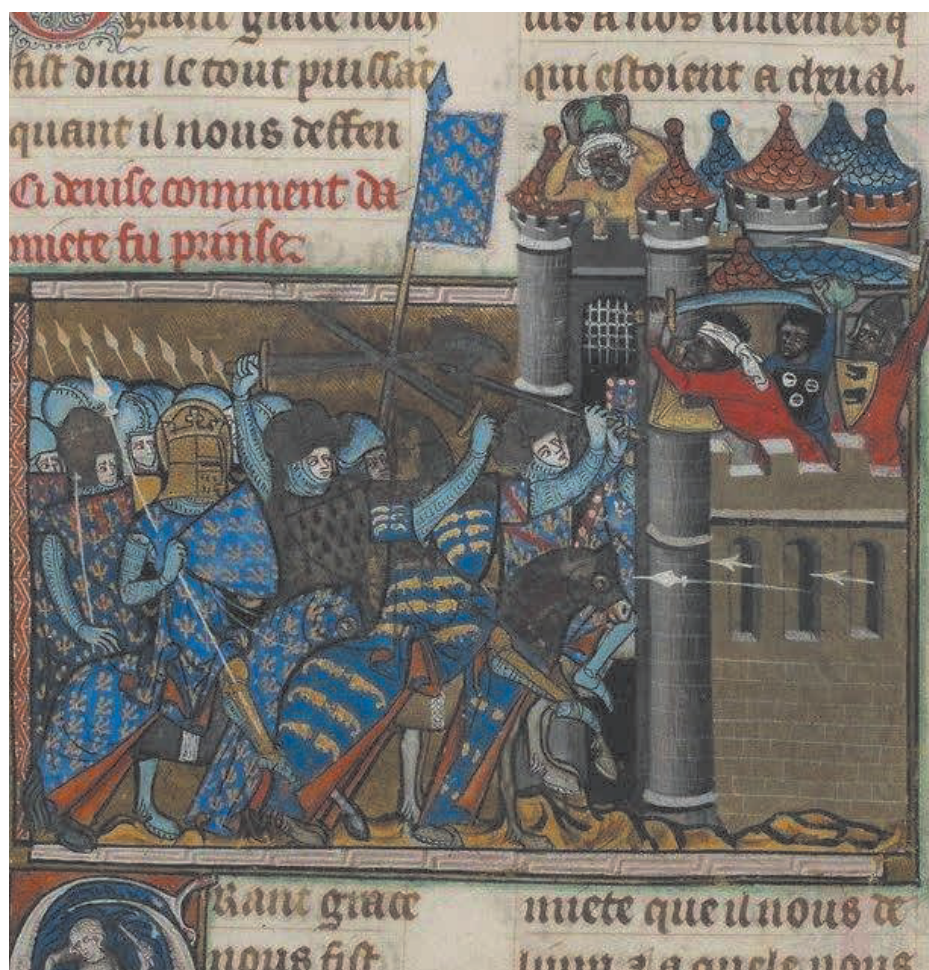 grant grace nous
fist dieu le tout puissat
quant il nous deffen
Ci deuise comment da
miete fu prinse
lus a nos ennemis q
qui estoient a cheual.
Grant grace
nous fist
miete que il nous de